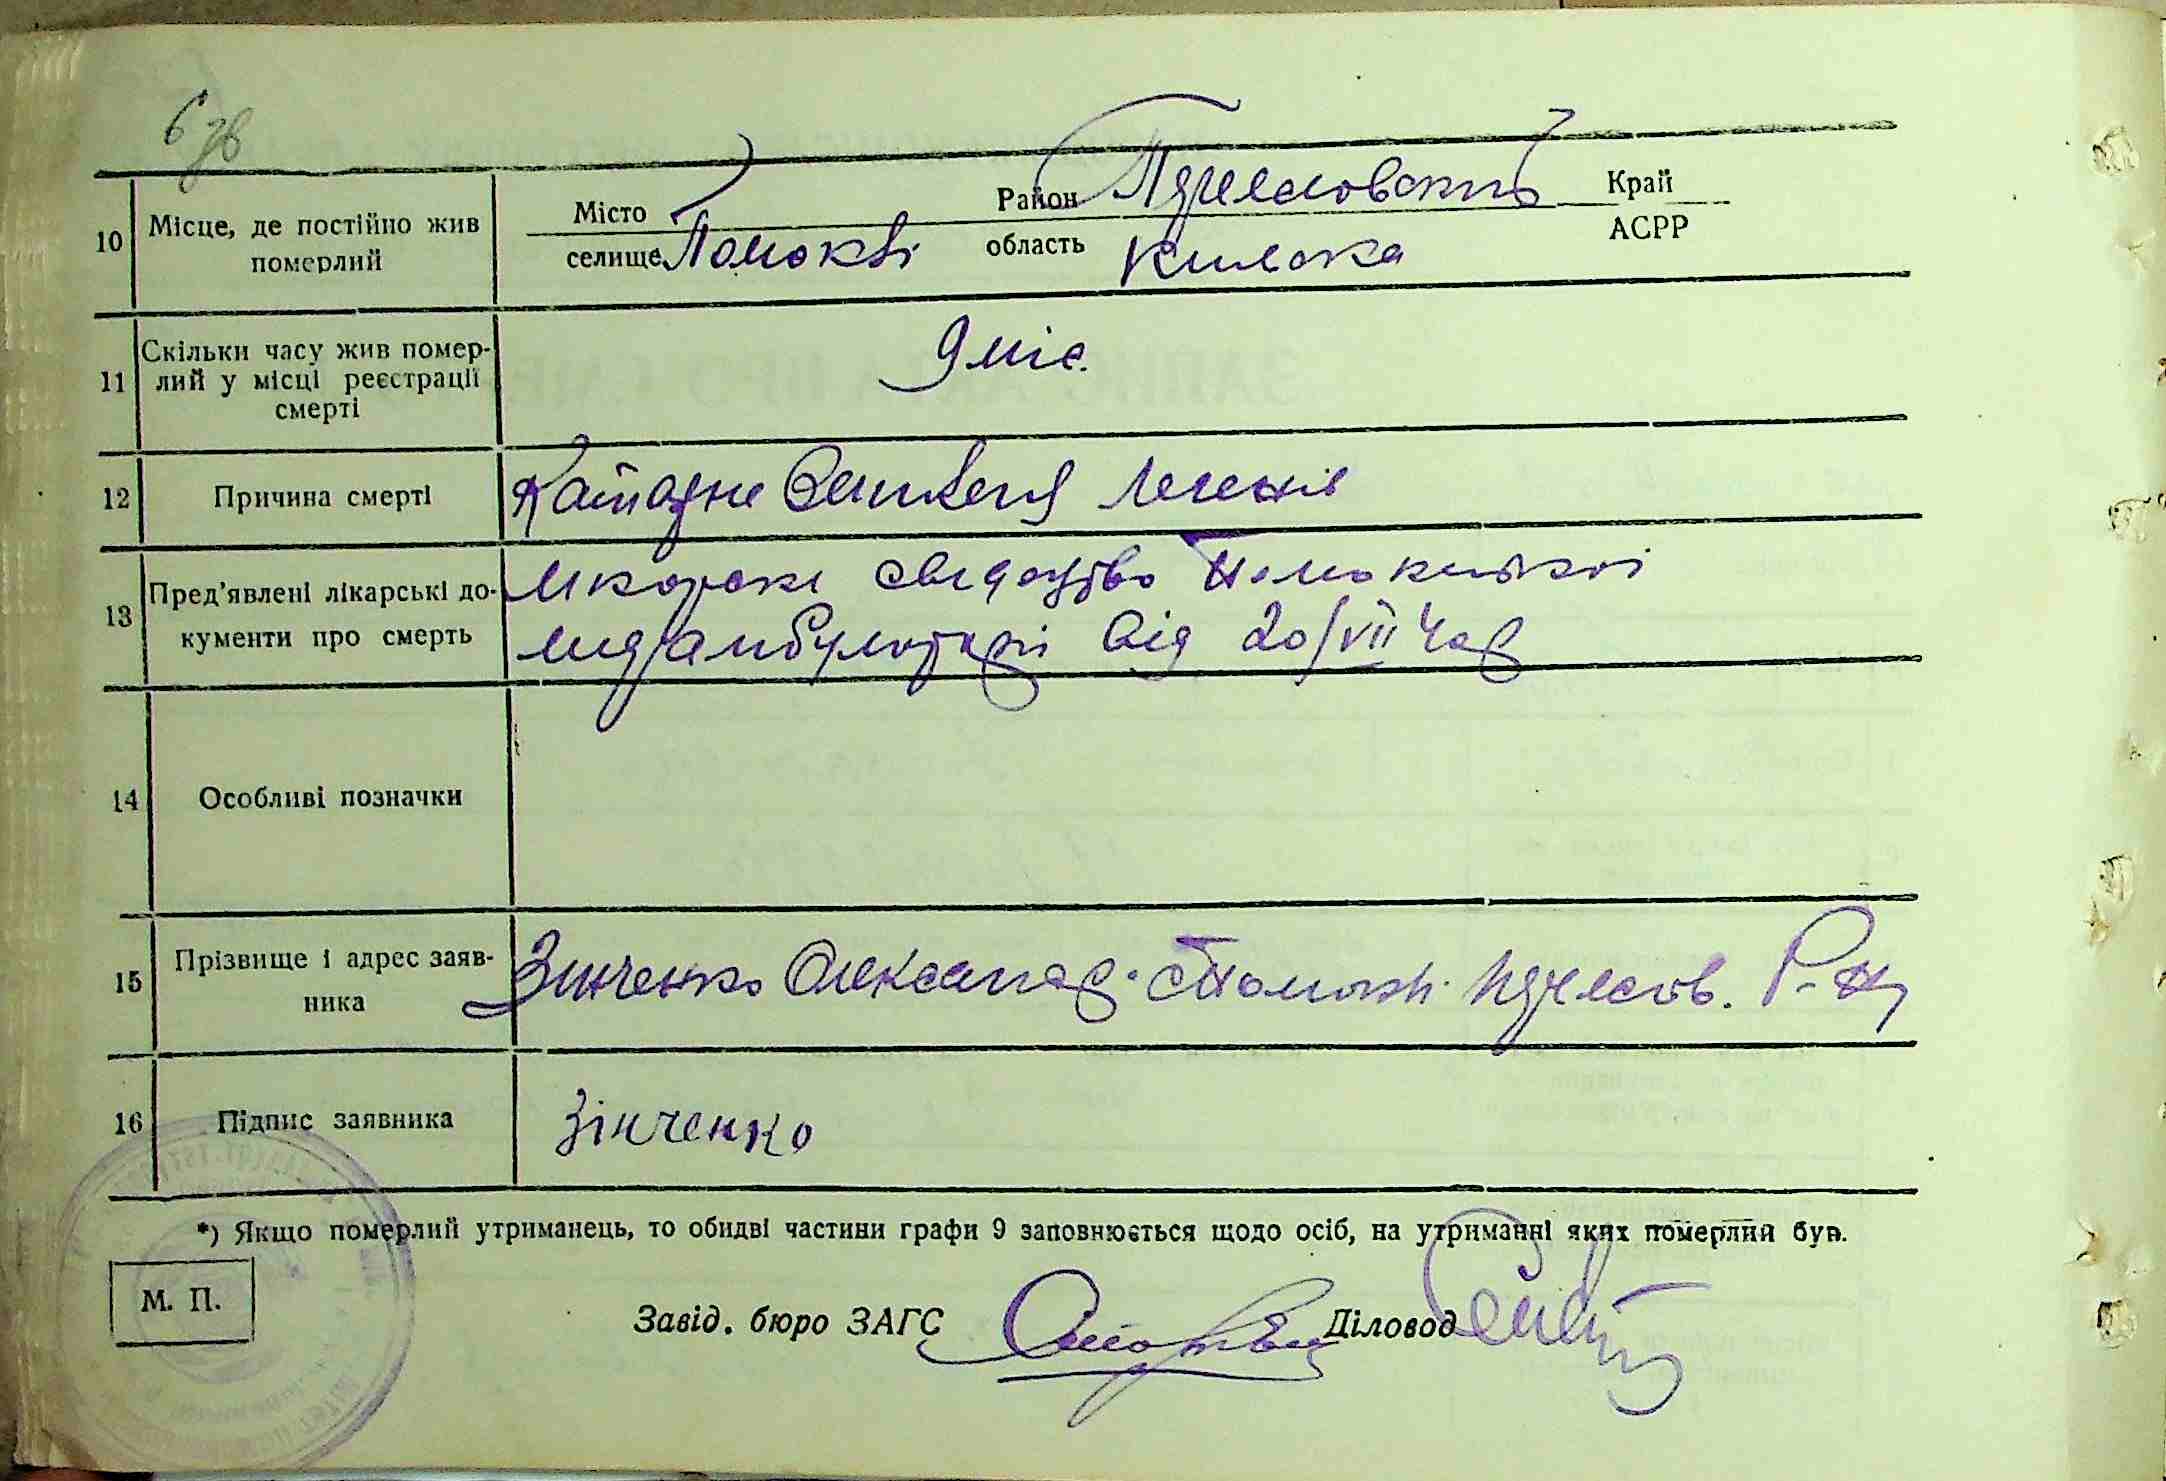 6 зв
10 Місце, де постійно жив померлий
Місто
селище Помоклі
Район П-Хмельовський Край
область Київська АСРР
11 Скільки часу жив померлий у місці реєстрації смерті
9 міс.
12 Причина смерті
Катарне запалення легенів
13 Пред'явлені лікарські документи про смерть
лікарське свідоцтво Помоклівської
медамбулаторії від 20/VII
14 Особливі позначки
15 Прізвище і адрес заявника
Зінченко Олександр. с Помоклі. р-н
16 Підпис заявника
Зінченко
*) Якщо померлий утриманець, то обидві частини графи 9 заповнюється щодо осіб, на утриманні яких померлий був.
М. П.
Завід. бюро ЗАГС
Діловод